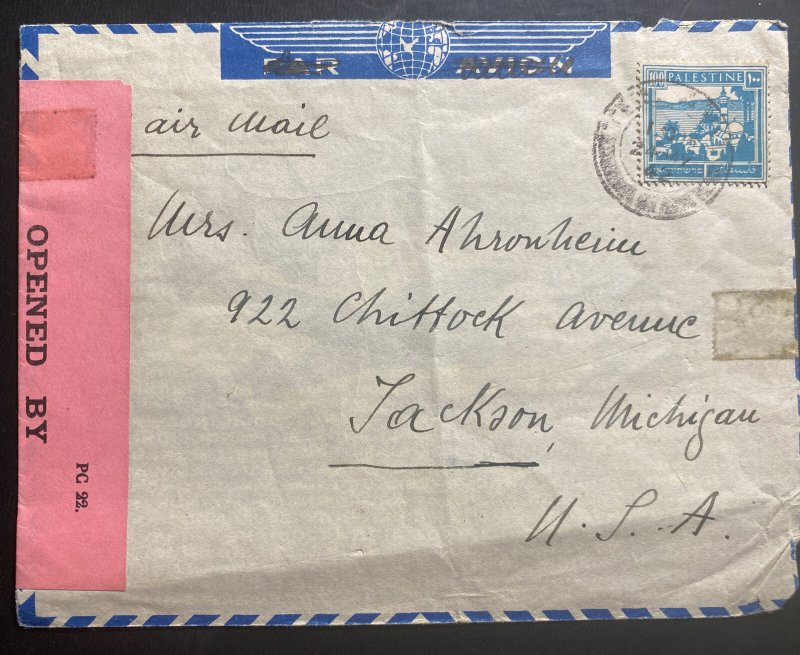 PAR AVION
100 PALESTINE ١٠٠
فلسطين פלשתינה א״י
air Mail
Mrs. Anna Ahronheim
922 Chittock Avenue
Jackson, Michigan
U.S.A.
OPENED BY
PC 22.